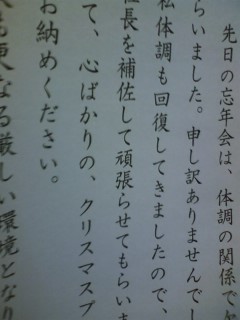 先日の忘年会は、体調の関係で
らいました。申し訳ありませんでし
私体調も回復してきましたので、
社長を補佐して頑張らせてもらいま
て、心ばかりの、クリスマスプ
お納めください。
も更なる厳しい環境となり